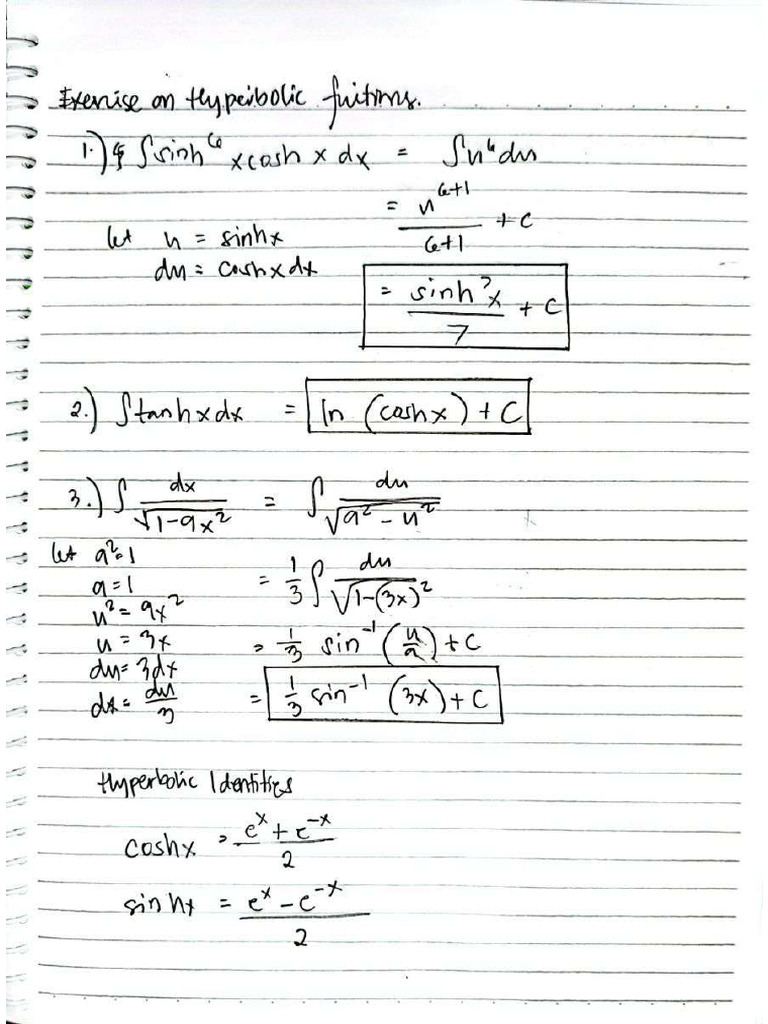 Exercise on Hyperbolic fuitions.
1.) ∫sinh⁶ x cosh x dx = ∫u⁶du
= u⁶⁺¹/6+1 + C
let u = sinhx
du = coshxdx
= sinh⁷x/7 + C
2.) ∫tanhxdx = ln (coshx) + C
3.) ∫ dx/√1-9x² = ∫ du/√a² - u²
let a²=1
a=1
= 1/3 ∫ du/√1-(3x)²
u² = 9x²
u = 3x
= 1/3 sin⁻¹ (u/a) + C
du = 3dx
dx = du/3
= 1/3 sin⁻¹ (3x) + C
Hyperbolic Identities
coshx = eˣ + e⁻ˣ/2
sinhx = eˣ - e⁻ˣ/2